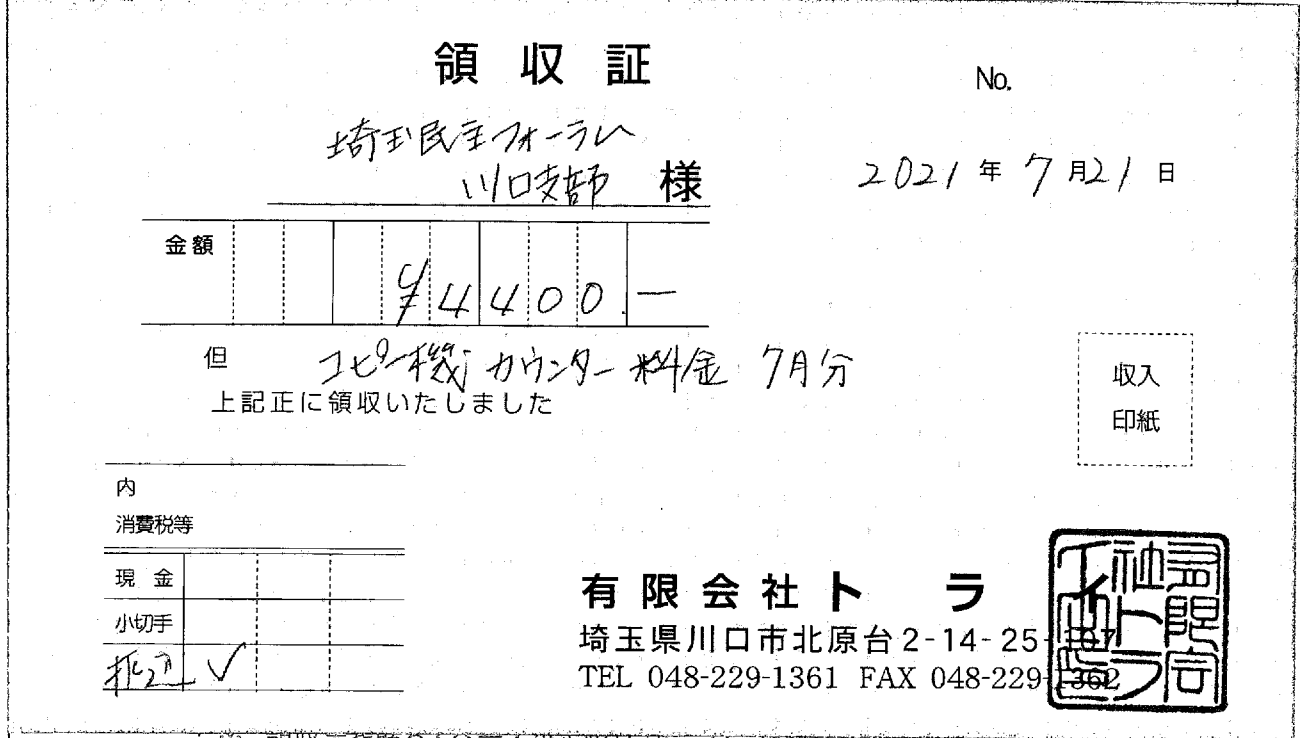 領収証
No.
埼玉民主フォーラム
川口支部 様
2021年7月21日
金額 ¥4400.—
但 コピー機カウンター料金 7月分
上記正に領収いたしました
収入
印紙
内
消費税等
現金
小切手
振込 ✓
有限会社トライ
埼玉県川口市北原台2-14-25-107
TEL 048-229-1361 FAX 048-229-1362
有限会社トライ